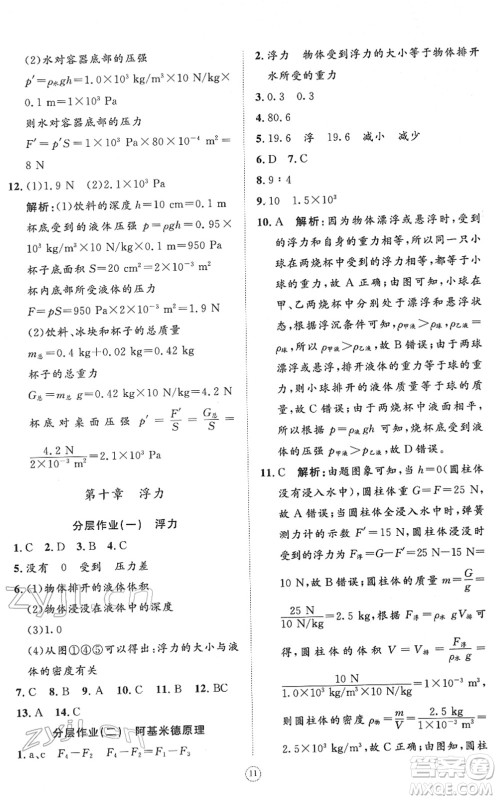 (2)水对容器底部的压强
p′=ρ水gh=1.0×10³ kg/m³×10 N/kg×
0.1 m=1×10³ Pa
则水对容器底部的压力
F′=p′S=1×10³ Pa×80×10⁻⁴ m²=
8 N
12.(1)1.9 N  (2)2.1×10³ Pa
解析:(1)饮料的深度 h=10 cm=0.1 m
杯底受到的液体压强 p=ρgh=0.95
×10³ kg/m³×10 N/kg×0.1 m=950 Pa
杯子底面积 S=20 cm²=2×10⁻³ m²
杯内底部所受液体的压力
F=pS=950 Pa×2×10⁻³ m²=1.9 N
(2)饮料、冰块和杯子的总质量
m总=0.4 kg+0.02 kg=0.42 kg
杯子的总重力
G总=m总g=0.42 kg×10 N/kg=4.2 N
杯底对桌面压强 p′=F′/S=G总/S=
4.2 N/2×10⁻³ m²=2.1×10³ Pa
第十章 浮力
分层作业(一) 浮力
1.C 2.D 3.B 4.C
5.没有 0 受到 压力差
6.(1)物体排开的液体体积
(2)物体浸没在液体中的深度
(3)1.0
(4)从图①④⑤可以得出:浮力的大小与液
体的密度有关
7.C 8.C 9.C 10.D 11.A 12.C
13.A 14.C
分层作业(二) 阿基米德原理
1.a、c F₄−F₂ F₄−F₂=F₁−F₃
2.浮力 物体受到浮力的大小等于物体排开
水所受的重力
3.0.3 0.3
4.80.6
5.19.6 浮 19.6 减小 减少
6.D 7.C
8.9∶4
9.10 1.5×10³
10.A 解析:因为物体漂浮或悬浮时,受到
的浮力和自身的重力相等,所以同一只
小球在两烧杯中受到的浮力相等,都等
于小球重力,故 A 正确;由图知,小球在
甲、乙两烧杯中分别处于漂浮、悬浮状
态,根据浮沉条件可知,ρ甲液>ρ物,ρ乙液=
ρ物,所以 ρ甲液>ρ乙液,故 B 错误;由于小
球漂浮、悬浮,排开液体的体积等于小球
浸入的体积,其体积小于或等于球的体
积,故 C 错误;由于两烧杯中液面相平,
且 ρ甲液>ρ乙液,由 p=ρgh 可知,烧杯底部
受液体的压强 p甲>p乙,故 D 错误。
11.C 解析:由题图象可知,当 h=0(圆柱体
没有浸入水中)时,G=F=25 N,圆柱体
受到的重力是 25 N;由题图象可知,当
圆柱体全部浸入水中(浸没水中)时,弹簧
测力计的示数为 F示=15 N,圆柱体受到
的最大浮力 F浮=G−F示=25 N−15 N=
10 N,由 G=mg 可得,圆柱体质量 m=G/g=
25 N/10 N/kg=2.5 kg,根据 F浮=ρ水gV排 可得,
圆柱体的体积 V=V排=F浮/ρ水g=
10 N/1.0×10³ kg/m³×10 N/kg=1×10⁻³ m³,
则圆柱体的密度 ρ物=m/V=2.5 kg/1×10⁻³ m³=
2.5×10³ kg/m³,故 C 错误,符合题意。
11
zyjl.cn